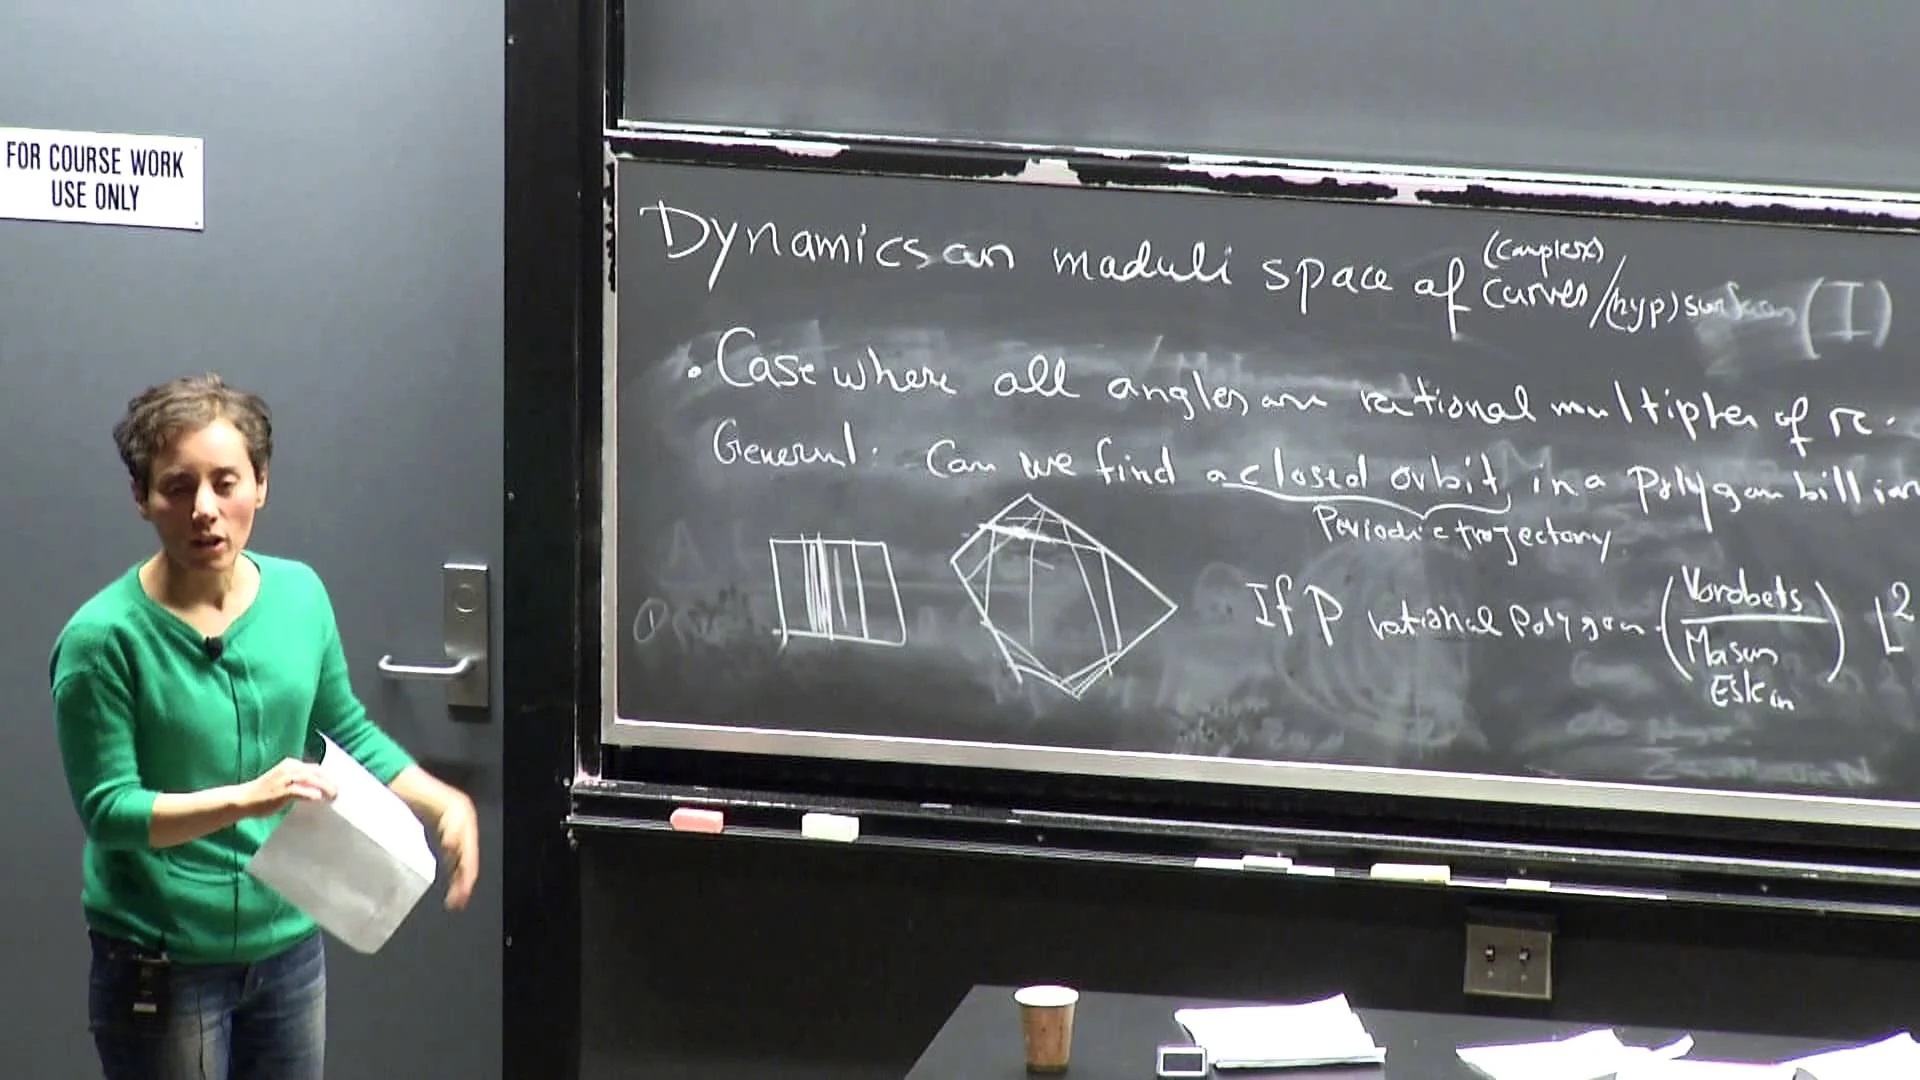 FOR COURSE WORK
USE ONLY
Dynamics on moduli space of (complex) curves/(hyp) surfaces (I)
• Case where all angles are rational multiples of π.
General: Can we find a closed orbit, in a polygon billiar
Periodic trajectory.
If P rational polygon. (Vorobets
Masur
Eskin) L²